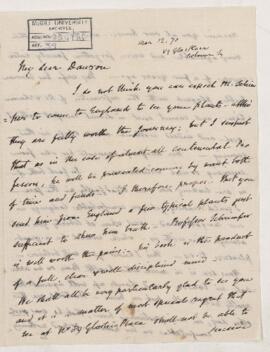 McGILL UNIVERSITY
ARCHIVES
ACC. NO.
REF.
Mar 12. 70
My dear Dawson
I do not think you can expect Mr.
to come to England to see your plants - altho'
they are fully worth the journey: but I suspect
that as in the case of almost all continental Pro
fessors; he will be prevented coming by want both
of time and funds. I therefore propose that you
send him from England a few typical plants just
sufficient to show him both. Professor Schimper
is well worth the pains. his book is the product
of a full, clear & well disciplined mind
We shall all be very particularly glad to see you
and it is a matter of most special regret that
we at No. 39 Gloster Place shall not be able to
receive